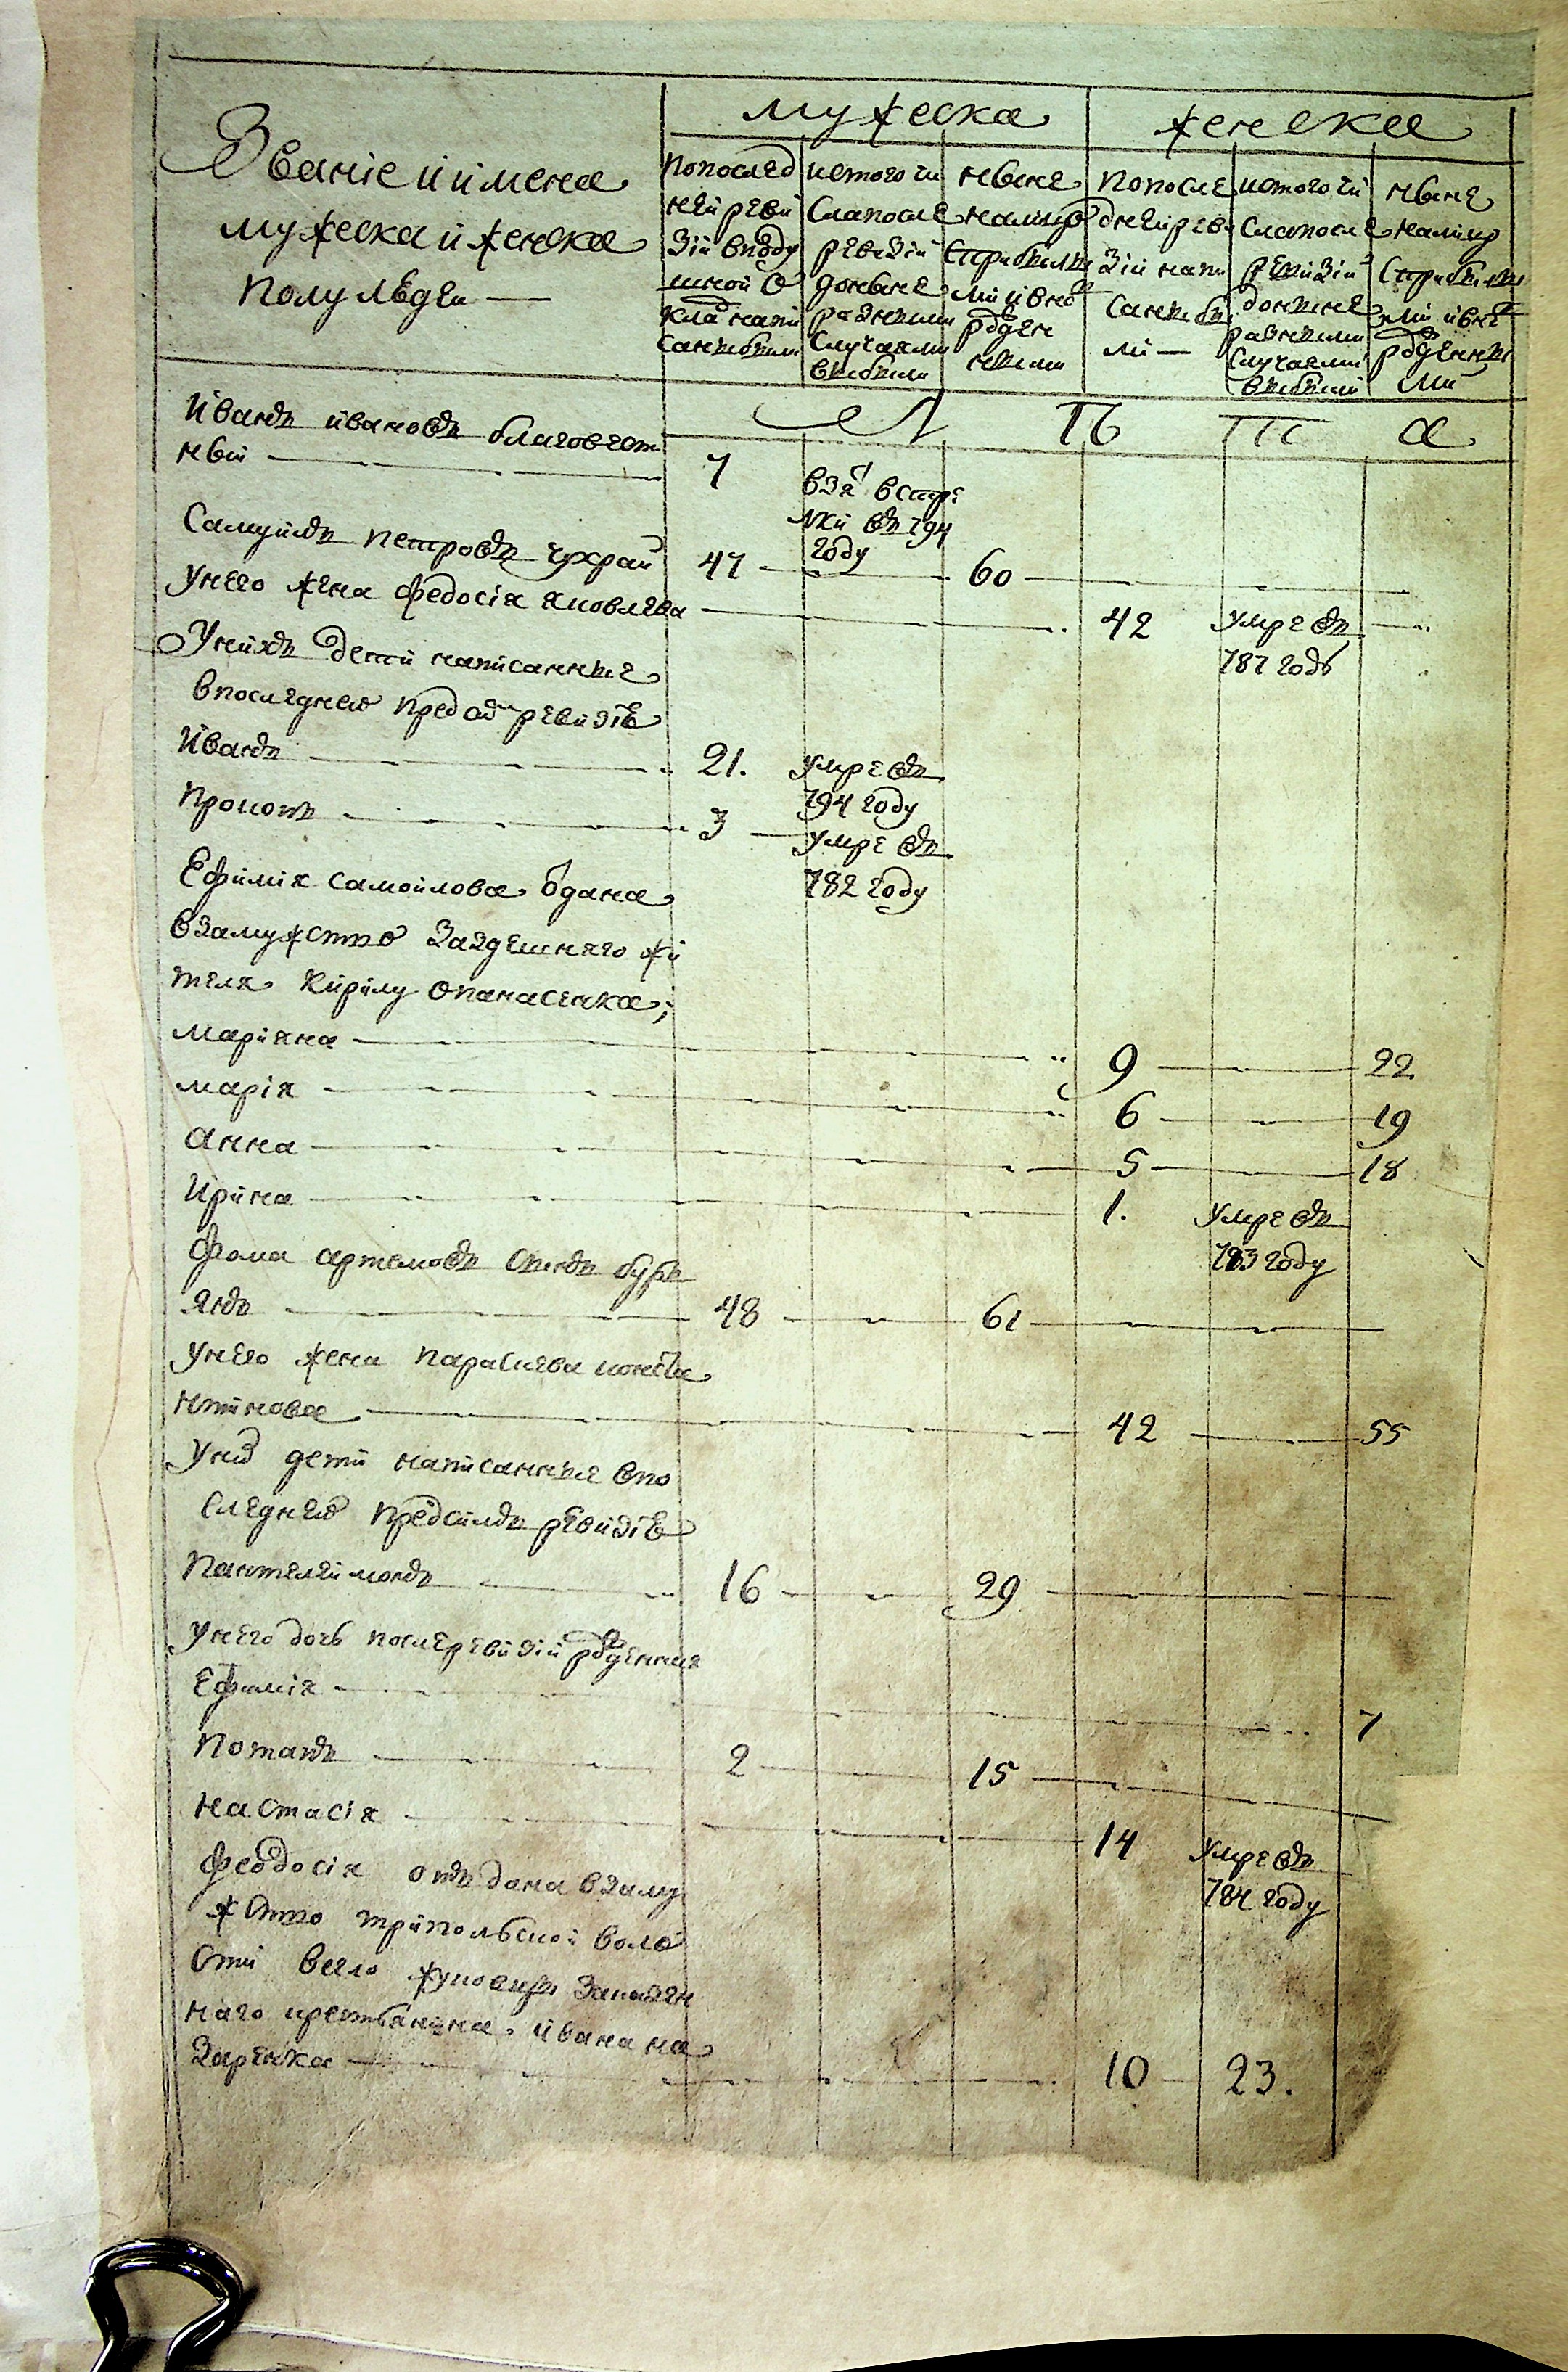 мужеска
женска
Званіе и имена
мужеска и женска
полу людей —
попослед
ней реви
зіи вподу
шной о
кладъ напи
санныхъ были
исътого чи
сла после
ревизіи
до ныне
разными
случаями
выбыли
ныне
налицо
с прибылы
ми и вно
рожден
ными
попосле
дней реви
зіи напи
санныя бы
ли —
исътого чи
сла после
ревизіи
до ныне
разными
случаями
выбыли
ныне
налицо
с прибылы
ми и вно
рожденны
ми
Л Ѣ Т а
Иванъ ивановъ благовест
ный — 7 взят встре
лки въ 794
году
Самуилъ петровъ чхрай 47 — 60
унего жена федосія яковлева — 42 умре въ
787 годе
Унихъ дети написанныя
впоследней пред сим ревизіи
Иванъ — 21. умре въ
794 году
прокопъ — 3 — умре въ
782 году
Ефимія самойлова одана
взамужство заздешняго жи
теля кирилу опанасенка;
маріяна — 9 — 22
марія — 6 — 19
анна — 5 — 18
ирина — 1. умре въ
783 году
фома артемовъ сынъ бурь
янъ — 48 — 61
унего жена параскева конста
нтинова — 42 — 55
уних дети написанныя впо
следней предсимъ ревизіи
пантелеймонъ — 16 — 29
унего дочь послеревизіи рожденная
Ефимія — 7
потапъ — 2 — 15
настасія — 14 умре въ
784 году
феодосія отъдана взаму
жство трипольской воло
сти всело жуковцы заказен
наго крестьянина ивана на
заренка — 10 — 23.